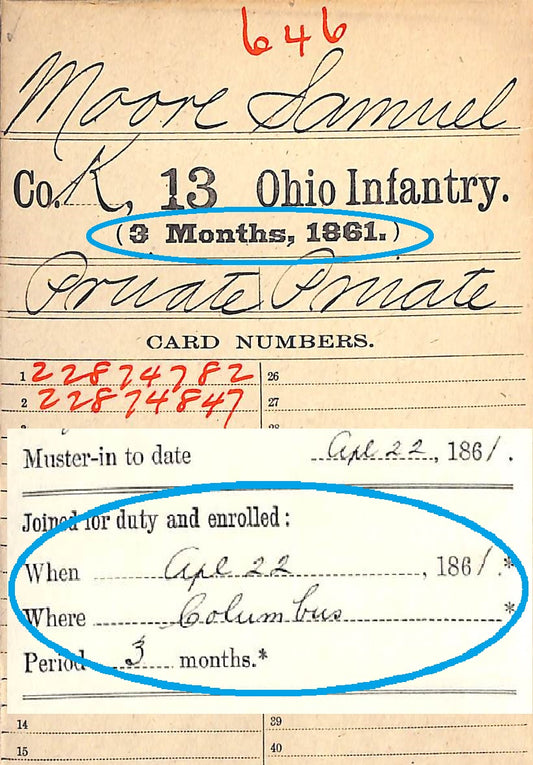 646
Moore Samuel
Co. K, 13 Ohio Infantry.
(3 Months, 1861.)
Private Private
CARD NUMBERS.
1 22874782 26
2 22874847 27
28
Muster-in to date Apl 22, 1861.
Joined for duty and enrolled:
When Apl 22, 1861.*
Where Columbus *
Period 3 months.*
14 39
15 40